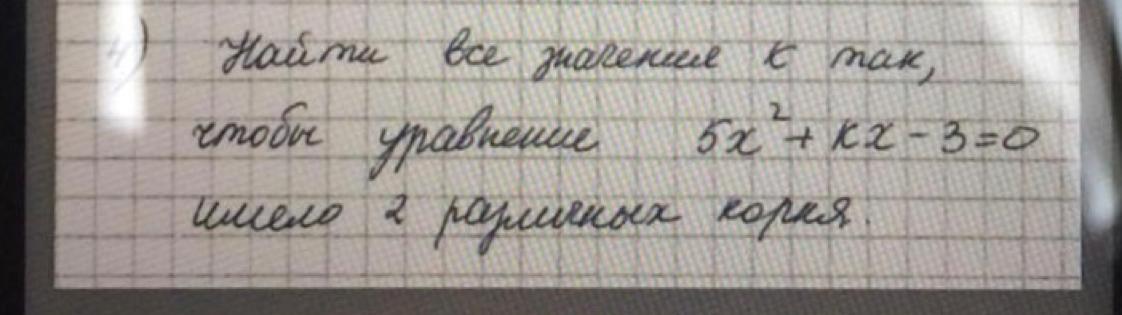 4) Найти все значения k так,
чтобы уравнение 5x² + kx - 3 = 0
имело 2 различных корня.